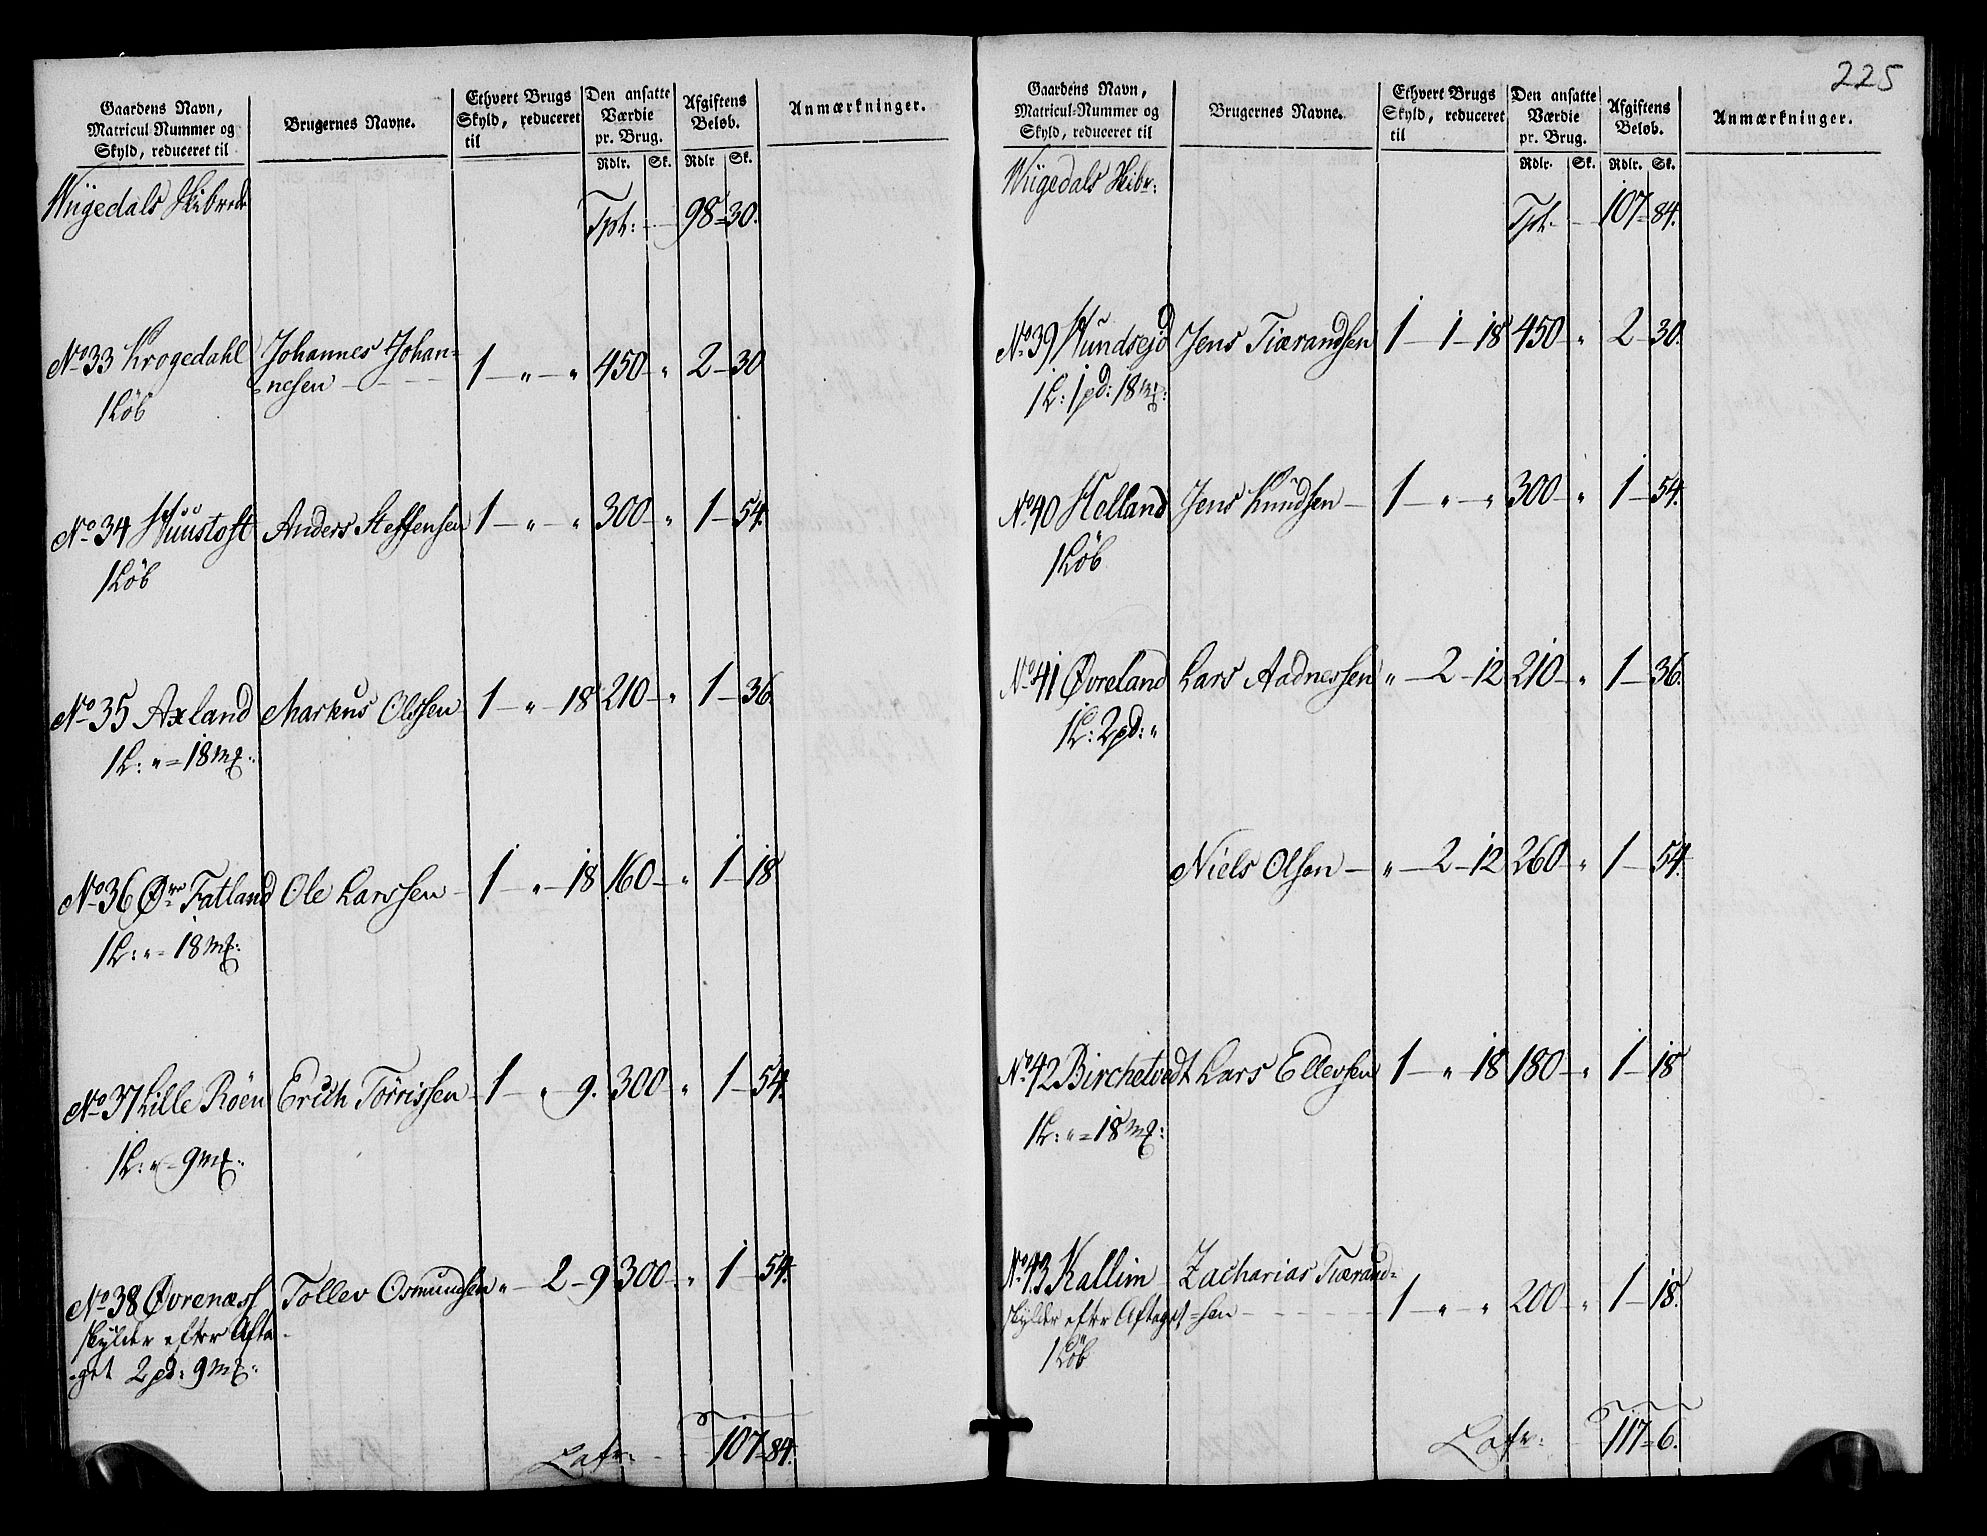 Gaardens Navn, Matricul Nummer og Skyld, reduceret til | Brugernes Navne. | Ethvert Brugs Skyld, reduceret til | Den ansatte Værdie pr. Brug. Rdlr. Sk. | Afgiftens Beløb. Rdlr. Sk. | Anmærkninger.
Wiigedals Skibrede
Tpt: 98 = 30.
No 33 Krogedahl Johannes Johan=
nesen 1 — " — " 450 — " 2 — 30
1 Löb
No 34 Huustoft Anders Steffensen 1 — " — " 300 — " 1 — 54.
1 Löb
No 35 Axland Markus Olssen 1 — " — 18 210 — " 1 — 36.
1 L: " = 18 mk:
No 36 Øre Fatland Ole Larssen 1 — " — 18 160 — " 1 — 18
1 L: " = 18 mk:
No 37 Lille Röen Erich Törrissen 1 — " 9. 300 — " 1 — 54.
1 L: " = 9 mk:
No 38 Øvrenæss Tollev Osmundsen " — 2 — 9 300 — " 1 — 54.
skylder efter Afta
get 2 pd: 9 mk:
Lafr: 107 = 84.
225
Gaardens Navn, Matricul-Nummer og Skyld, reduceret til | Brugernes Navne. | Ethvert Brugs Skyld, reduceret til | Den ansatte Værdie pr. Brug. Rdlr. Sk. | Afgiftens Beløb. Rdlr. Sk. | Anmærkninger.
Wiigedals Skibr:
Tpt. 107 = 84.
No 39 Hundsejd Jens Tiærandsen 1 — 1 — 18 450 " 2 — 30.
1 L: 1 pd: 18 mk:
No 40 Helland Jens Knudsen — 1 — " — " 300 — " 1 — 54.
1 Löb
No 41 Øvreland Lars Aadnessen " — 2 — 12 210 — " 1 — 36.
1 L: 2 pd: "
Niels Olsen — " — 2 — 12 260 — " 1 — 54.
No 42 Birchetvedt Lars Ellevsen 1 — " 18 180 — " 1 — 18
1 L: " = 18 mk:
No 43 Kallim Zacharias Tiærand=
skylder efter Aftaget =sen 1 — " — " 200 — " 1 — 18.
1 Löb
Lafr: 117 = 6.